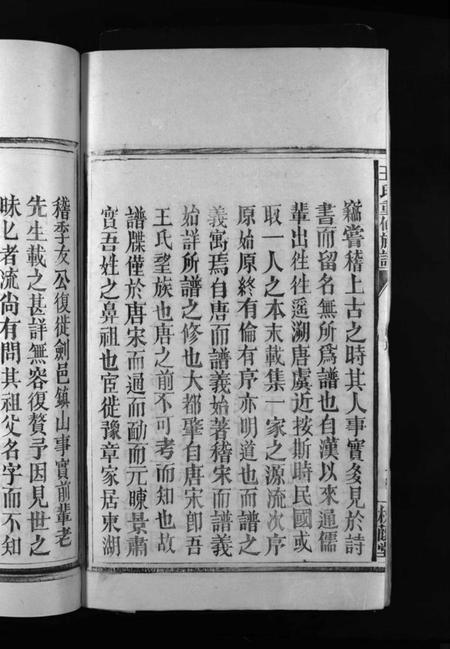 竊嘗稽上古之時其人事實多見於詩
書而留名無所為譜也自漢以來通儒
輩出徃徃遥溯唐虞近按斯時民國或
取一人之本末載集一家之源流次序
原始原終有倫有序亦明道也而譜之
義寓焉自唐而譜義始著稽宋而譜義
始詳所譜之修也大都肇自唐宋卽吾
王氏望族也唐之前不可考而知也故
譜牒僅於唐宋而通而勔而元暕景肅
實吾姓之鼻祖也宦徙豫章家居東湖
稽季友公復徙劍邑鎮山事實前輩老
先生載之甚詳無容復贅予因見世之
昧匕者流尚有問其祖父名字而不知
王氏重修族譜